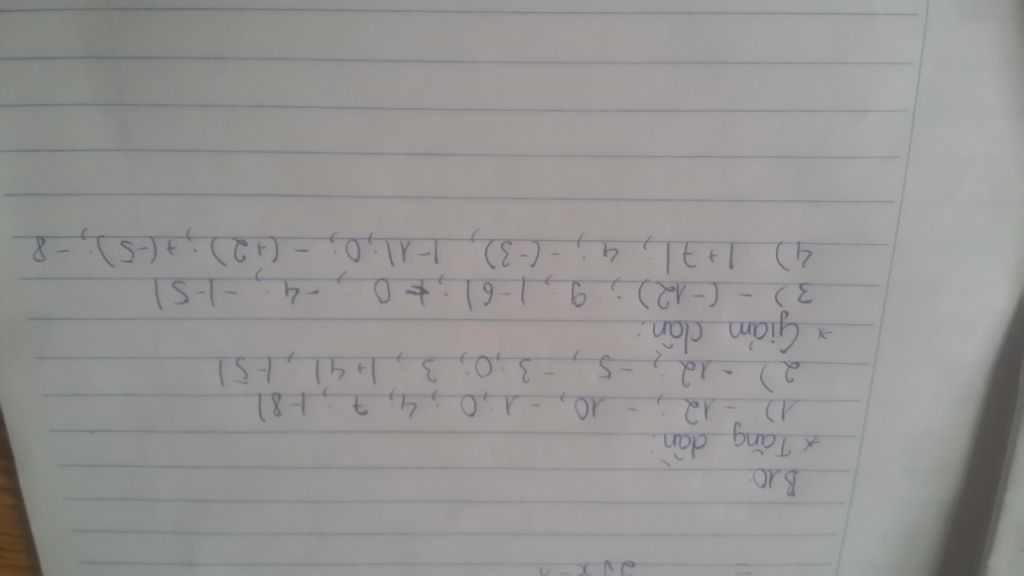 B10.
* Tăng dần:
1) - 12 ; - 10 ; - 1 ; 0 ; 4 ; 7 ; |-8|
2) - 12 ; - 5 ; - 3 ; 0 ; 3 ; |+4| ; |-5|
* Giảm dần:
3) - (-12) ; 9 ; |-6| ; 0 ; -4 ; - |-5|
4) |+7| ; 4 ; - (-3) ; |-1| ; 0 ; - (+2) ; + (-5) ; - 8